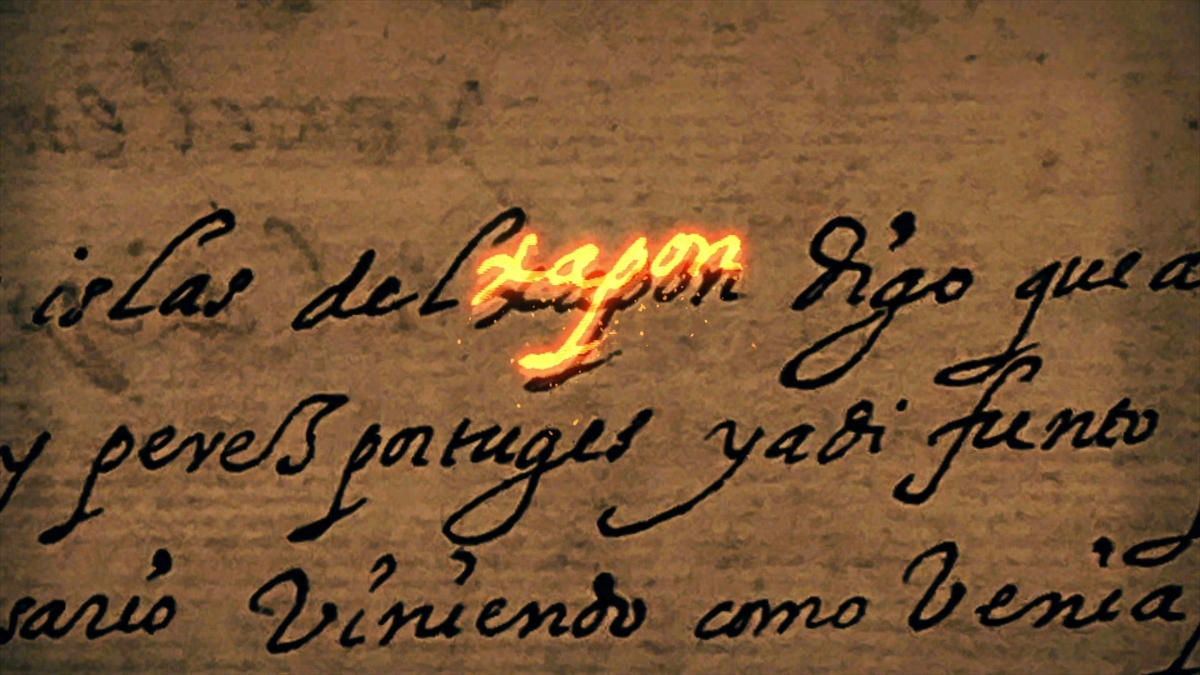 islas del xapon digo que a
y perez portuges y adi junto
sario Viniendo como Venia